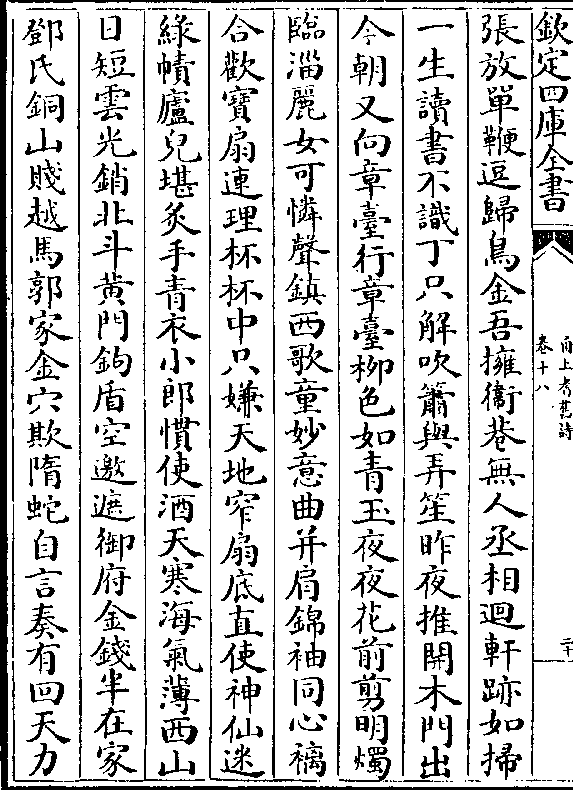 欽定四庫全書
甬上耆舊詩
卷十八
二十
張放單鞭逗歸鳥金吾擁衛巷無人丞相迴軒跡如掃
一生讀書不識丁只解吹簫與弄笙昨夜推開木門出
今朝又向章臺行章臺柳色如青玉夜夜花前剪明燭
臨淄麗女可憐聲鎮西歌童妙意曲并肩錦袖同心褵
合歡寶扇連理杯杯中只嫌天地窄扇底直使神仙迷
綠幘廬兒堪炙手青衣小郎慣使酒天寒海氣薄西山
日短雲光銷北斗黃門鉤盾空邀遮御府金錢半在家
鄧氏銅山賤越馬郭家金穴欺隋蛇自言奏有回天力